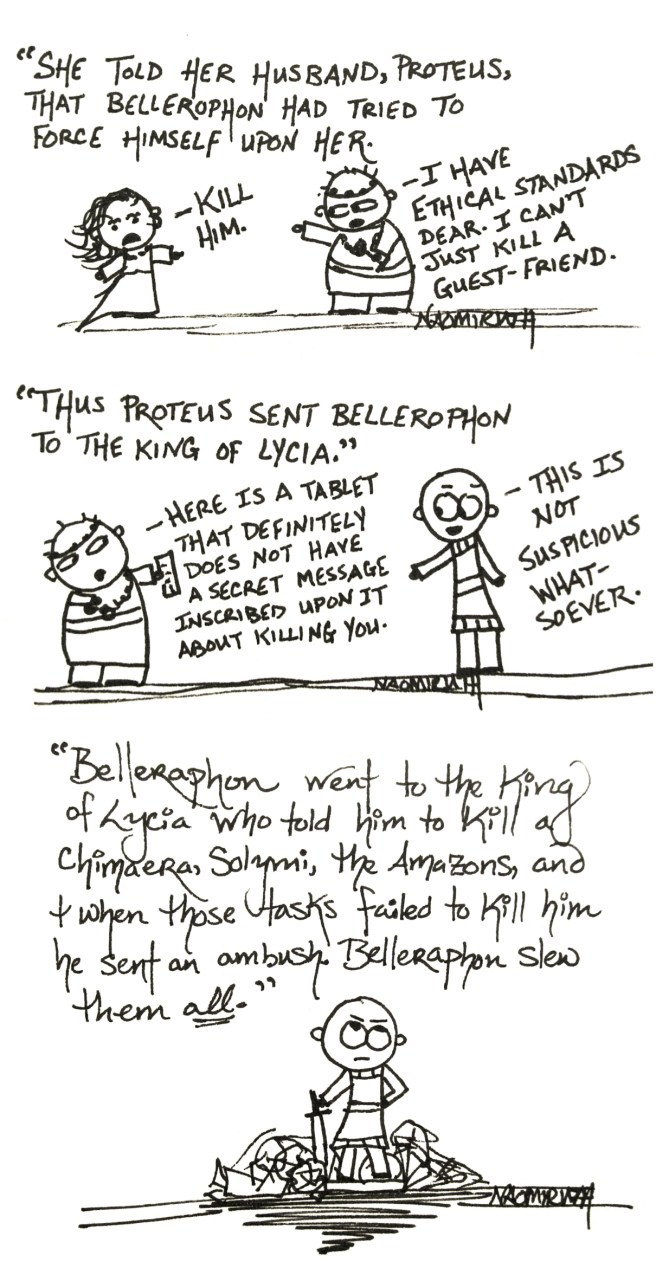 "SHE TOLD HER HUSBAND, PROTEUS,
THAT BELLEROPHON HAD TRIED TO
FORCE HIMSELF UPON HER.
-KILL
HIM.
-I HAVE
ETHICAL STANDARDS
DEAR. I CAN'T
JUST KILL A
GUEST-FRIEND.
"THUS PROTEUS SENT BELLEROPHON
TO THE KING OF LYCIA."
-HERE IS A TABLET
THAT DEFINITELY
DOES NOT HAVE
A SECRET MESSAGE
INSCRIBED UPON IT
ABOUT KILLING YOU.
-THIS IS
NOT
SUSPICIOUS
WHAT-
SOEVER.
"Belleraphon went to the King
of Lycia who told him to Kill a
Chimaera, Solymi, the Amazons, and
+ when those tasks failed to Kill him
he sent an ambush. Belleraphon slew
them all."